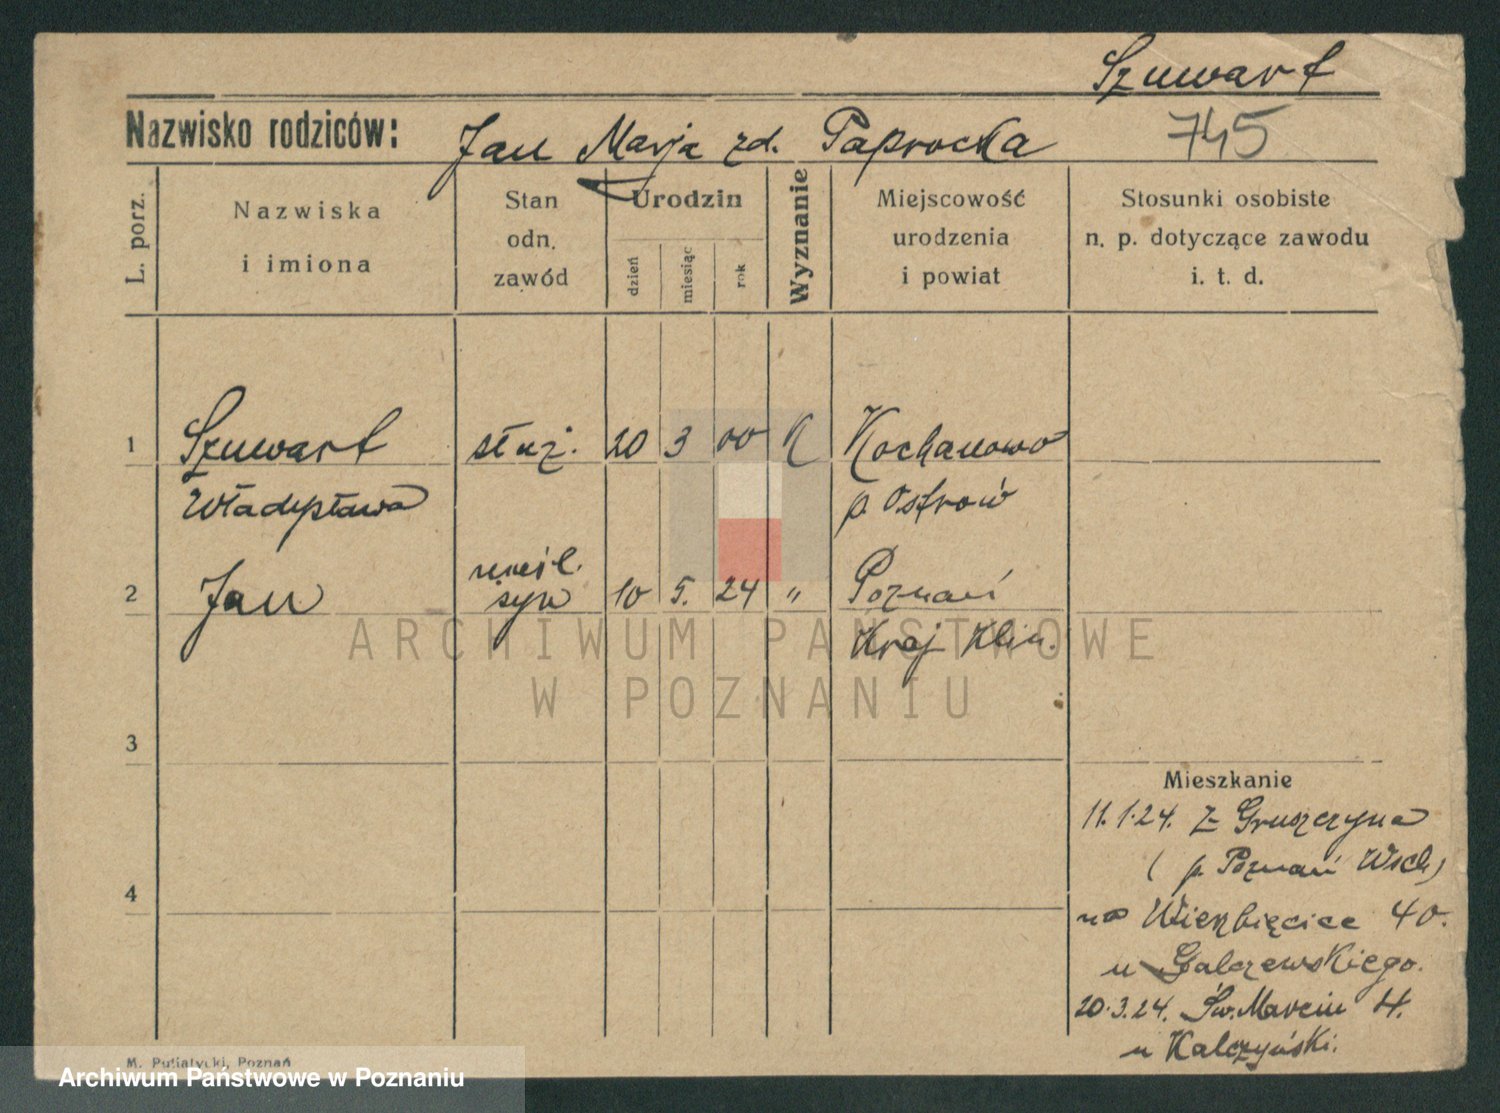 Szuwart
Nazwisko rodziców: Jan Marja zd. Paprocka 745
L. porz. Nazwiska i imiona Stan odn. zawód Urodzin dzień miesiąc rok Wyznanie Miejscowość urodzenia i powiat Stosunki osobiste n. p. dotyczące zawodu i. t. d.
1 Szuwart służ. 20 3 00 K Kochanowo
Władysława p. Ostrow
nieśl.
2 Jan syn 10 5. 24 " Poznań
Kraj Klin.
3
Mieszkanie
11.1.24. Z Gruszczyna
4 (p. Poznań Wsch)
na Wierzbięcice 40.
u Galczewskiego.
20.3.24. Św. Marcin 4.
u Kalczyński.
M. Putiatycki, Poznań
ARCHIWUM PAŃSTWOWE
W POZNANIU
Archiwum Państwowe w Poznaniu